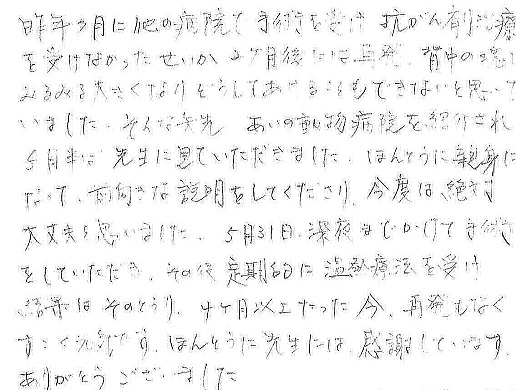 昨年3月に他の病院で手術を受け 抗がん剤治療
を受けなかったせいか 2ヶ月後には再発、背中の
みるみる大きくなりどうしてあげることもできないと思って
いました。そんな矢先 あいの動物病院を紹介され
5月半ば先生に見ていただきました。ほんとうに親身に
なって、前向きな説明をしてくださり、今度は絶対
大丈夫と思いました。5月31日、深夜までかけて手術
をしていただき、その後定期的に温熱療法を受け
結果はそのとうり、4ヶ月以上たった今、再発もなく
すごく元気です。ほんとうに先生には、感謝しています。
ありがとうございました